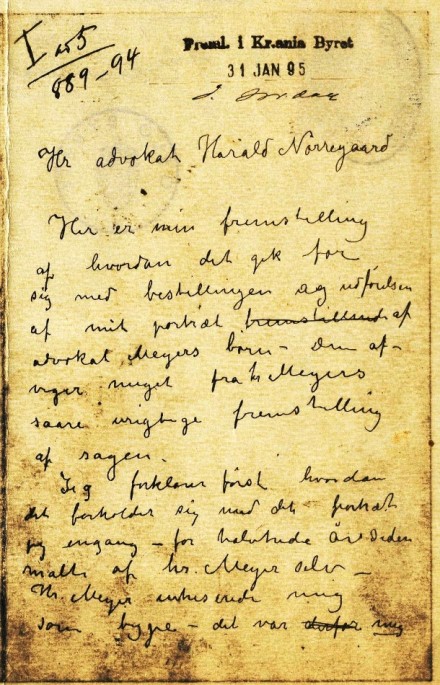 I no 5
889-94
Freml. i Kr.ania Byret
31 JAN 95
Hr advokat Harald Nørregaard
Her er min fremstilling
af hvordan det gik for
sig med bestillingen og udförelsen
af mit portræt af
advokat Meyers børn – Den af-
viger meget fra hr Meyers
saare urigtige fremstilling
af sagen.
Jeg forklarer först hvordan
det forholder sig med det portræt
jeg engang – for halvtredie År siden
malte af hr. Meyer selv –
Hr Meyer mig
som – det var derfor mig